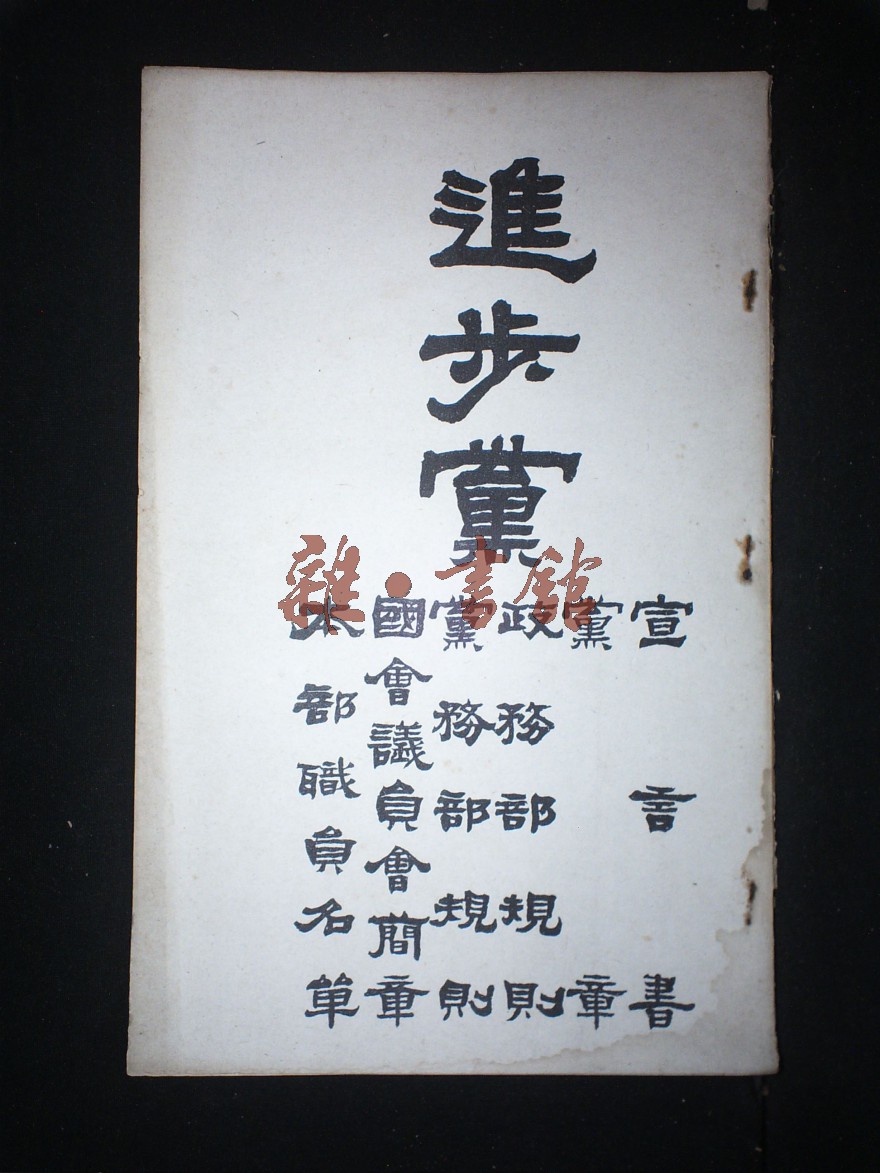 進步黨
宣言書
黨章
政務部規則
黨務部規則
國會議員會簡章
本部職員名單
雜·書館